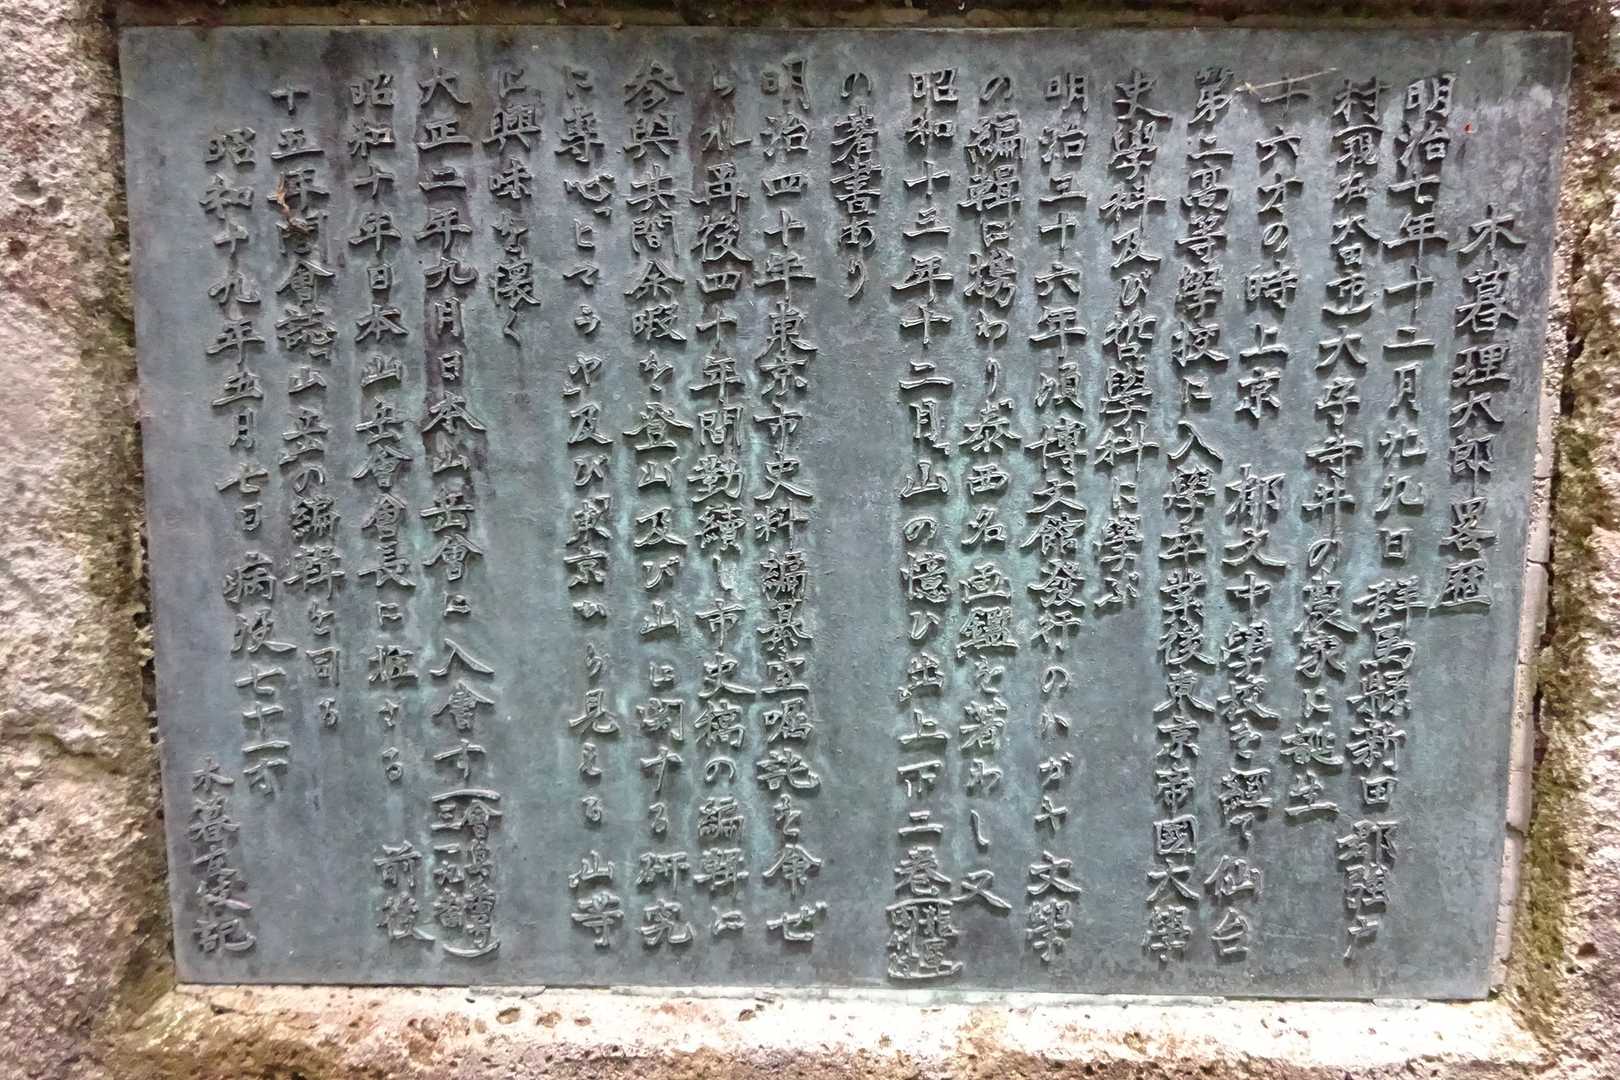 木暮理太郎畧歴
明治七年十二月廿九日 群馬縣新田郡強戸
村(現在太田市)大字寺井の農家に誕生
十六才の時上京 郁文中學校を經て仙台
第二高等學校に入學卒業後東京帝國大學
史學科及び哲學科に學ぶ
明治三十六年頃博文館發行のハガキ文學
の編輯に携わり泰西名画鑑を著わし又
昭和十三年十二月山の憶ひ出上下二巻(龍星閣)
の著書あり
明治四十年東京市史料編纂室嘱託を命ぜ
られ再後四十年間勤續し市史稿の編輯に
参與其間余暇を登山及び山に関する研究
に専心ヒマラヤ及び東京から見える山等
に興味を懐く
大正二年九月日本山岳會に入會す(會員番号三一九番)
昭和十年日本山岳會會長に推さる 前後
十五年間會誌山岳の編輯を司る
昭和十九年五月七日病没七十一才
木暮 記